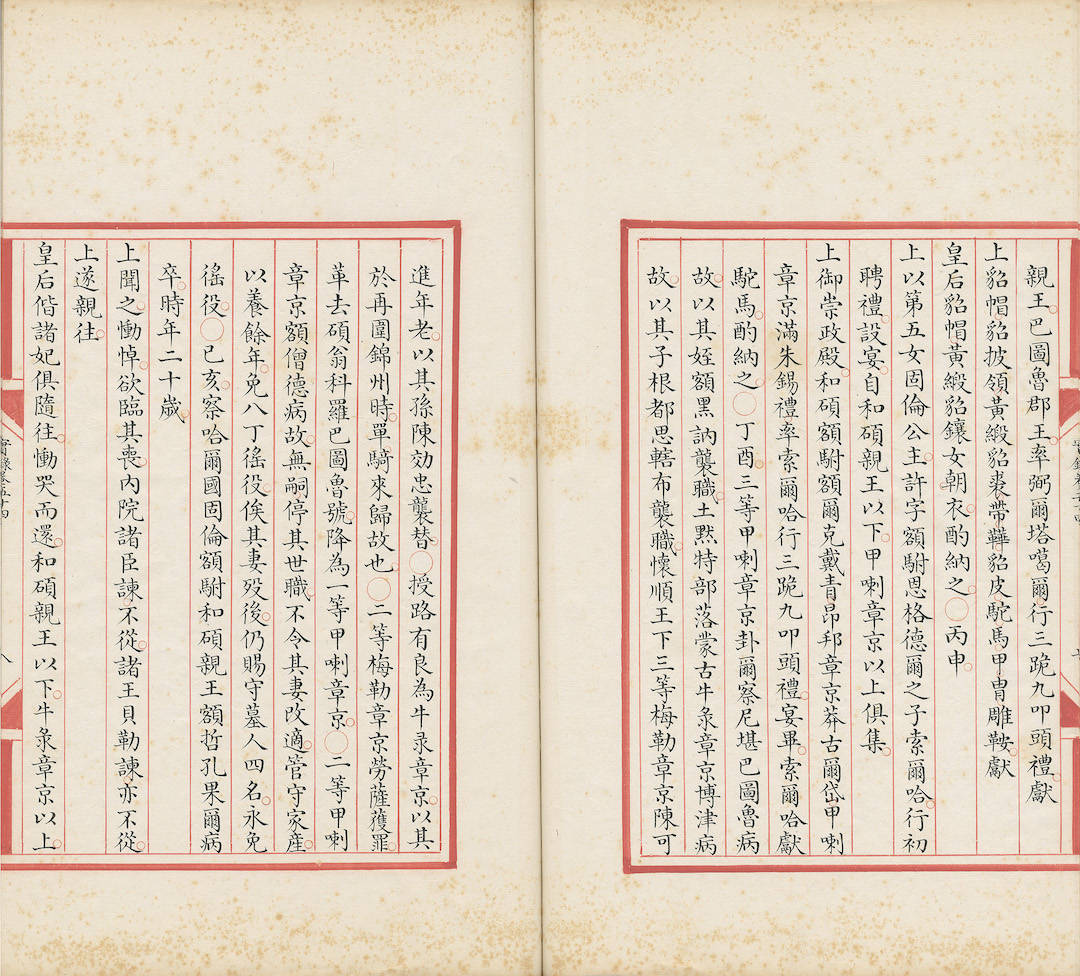 親王。巴圖魯郡王。率弼爾塔噶爾行三跪九叩頭禮。獻
上貂帽貂披領黃緞貂裘帶鞾貂皮駝馬甲冑雕鞍。獻
皇后貂帽黃緞貂鑲女朝衣。酌納之。○丙申。
上以第五女固倫公主。許字額駙恩格德爾之子索爾哈。行初
聘禮。設宴。自和碩親王以下。甲喇章京以上俱集。
上御崇政殿。和碩額駙額爾克戴青昂邦章京莽古爾岱甲喇
章京滿朱錫禮。率索爾哈行三跪九叩頭禮。宴畢。索爾哈獻
駝馬。酌納之。○丁酉。三等甲喇章京卦爾察尼堪巴圖魯病
故。以其姪額黑訥襲職。土默特部落蒙古牛彔章京博津病
故。以其子根都思轄布襲職。懷順王下三等梅勒章京陳可
進年老。以其孫陳効忠襲替。○授路有良為牛彔章京。以其
於再圍錦州時。單騎來歸故也。○二等梅勒章京勞薩獲罪。
革去碩翁科羅巴圖魯號。降為一等甲喇章京。○二等甲喇
章京額僧德病故。無嗣。停其世職。不令其妻改適。管守家產。
以養餘年。免八丁徭役。俟其妻歿後。仍賜守墓人四名。永免
徭役。○己亥。察哈爾國固倫額駙和碩親王額哲孔果爾病
卒。時年二十歲。
上聞之慟悼。欲臨其喪。內院諸臣諫不從。諸王貝勒諫亦不從。
上遂親往。
皇后偕諸妃俱隨往。慟哭而還。和碩親王以下。牛彔章京以上。
八